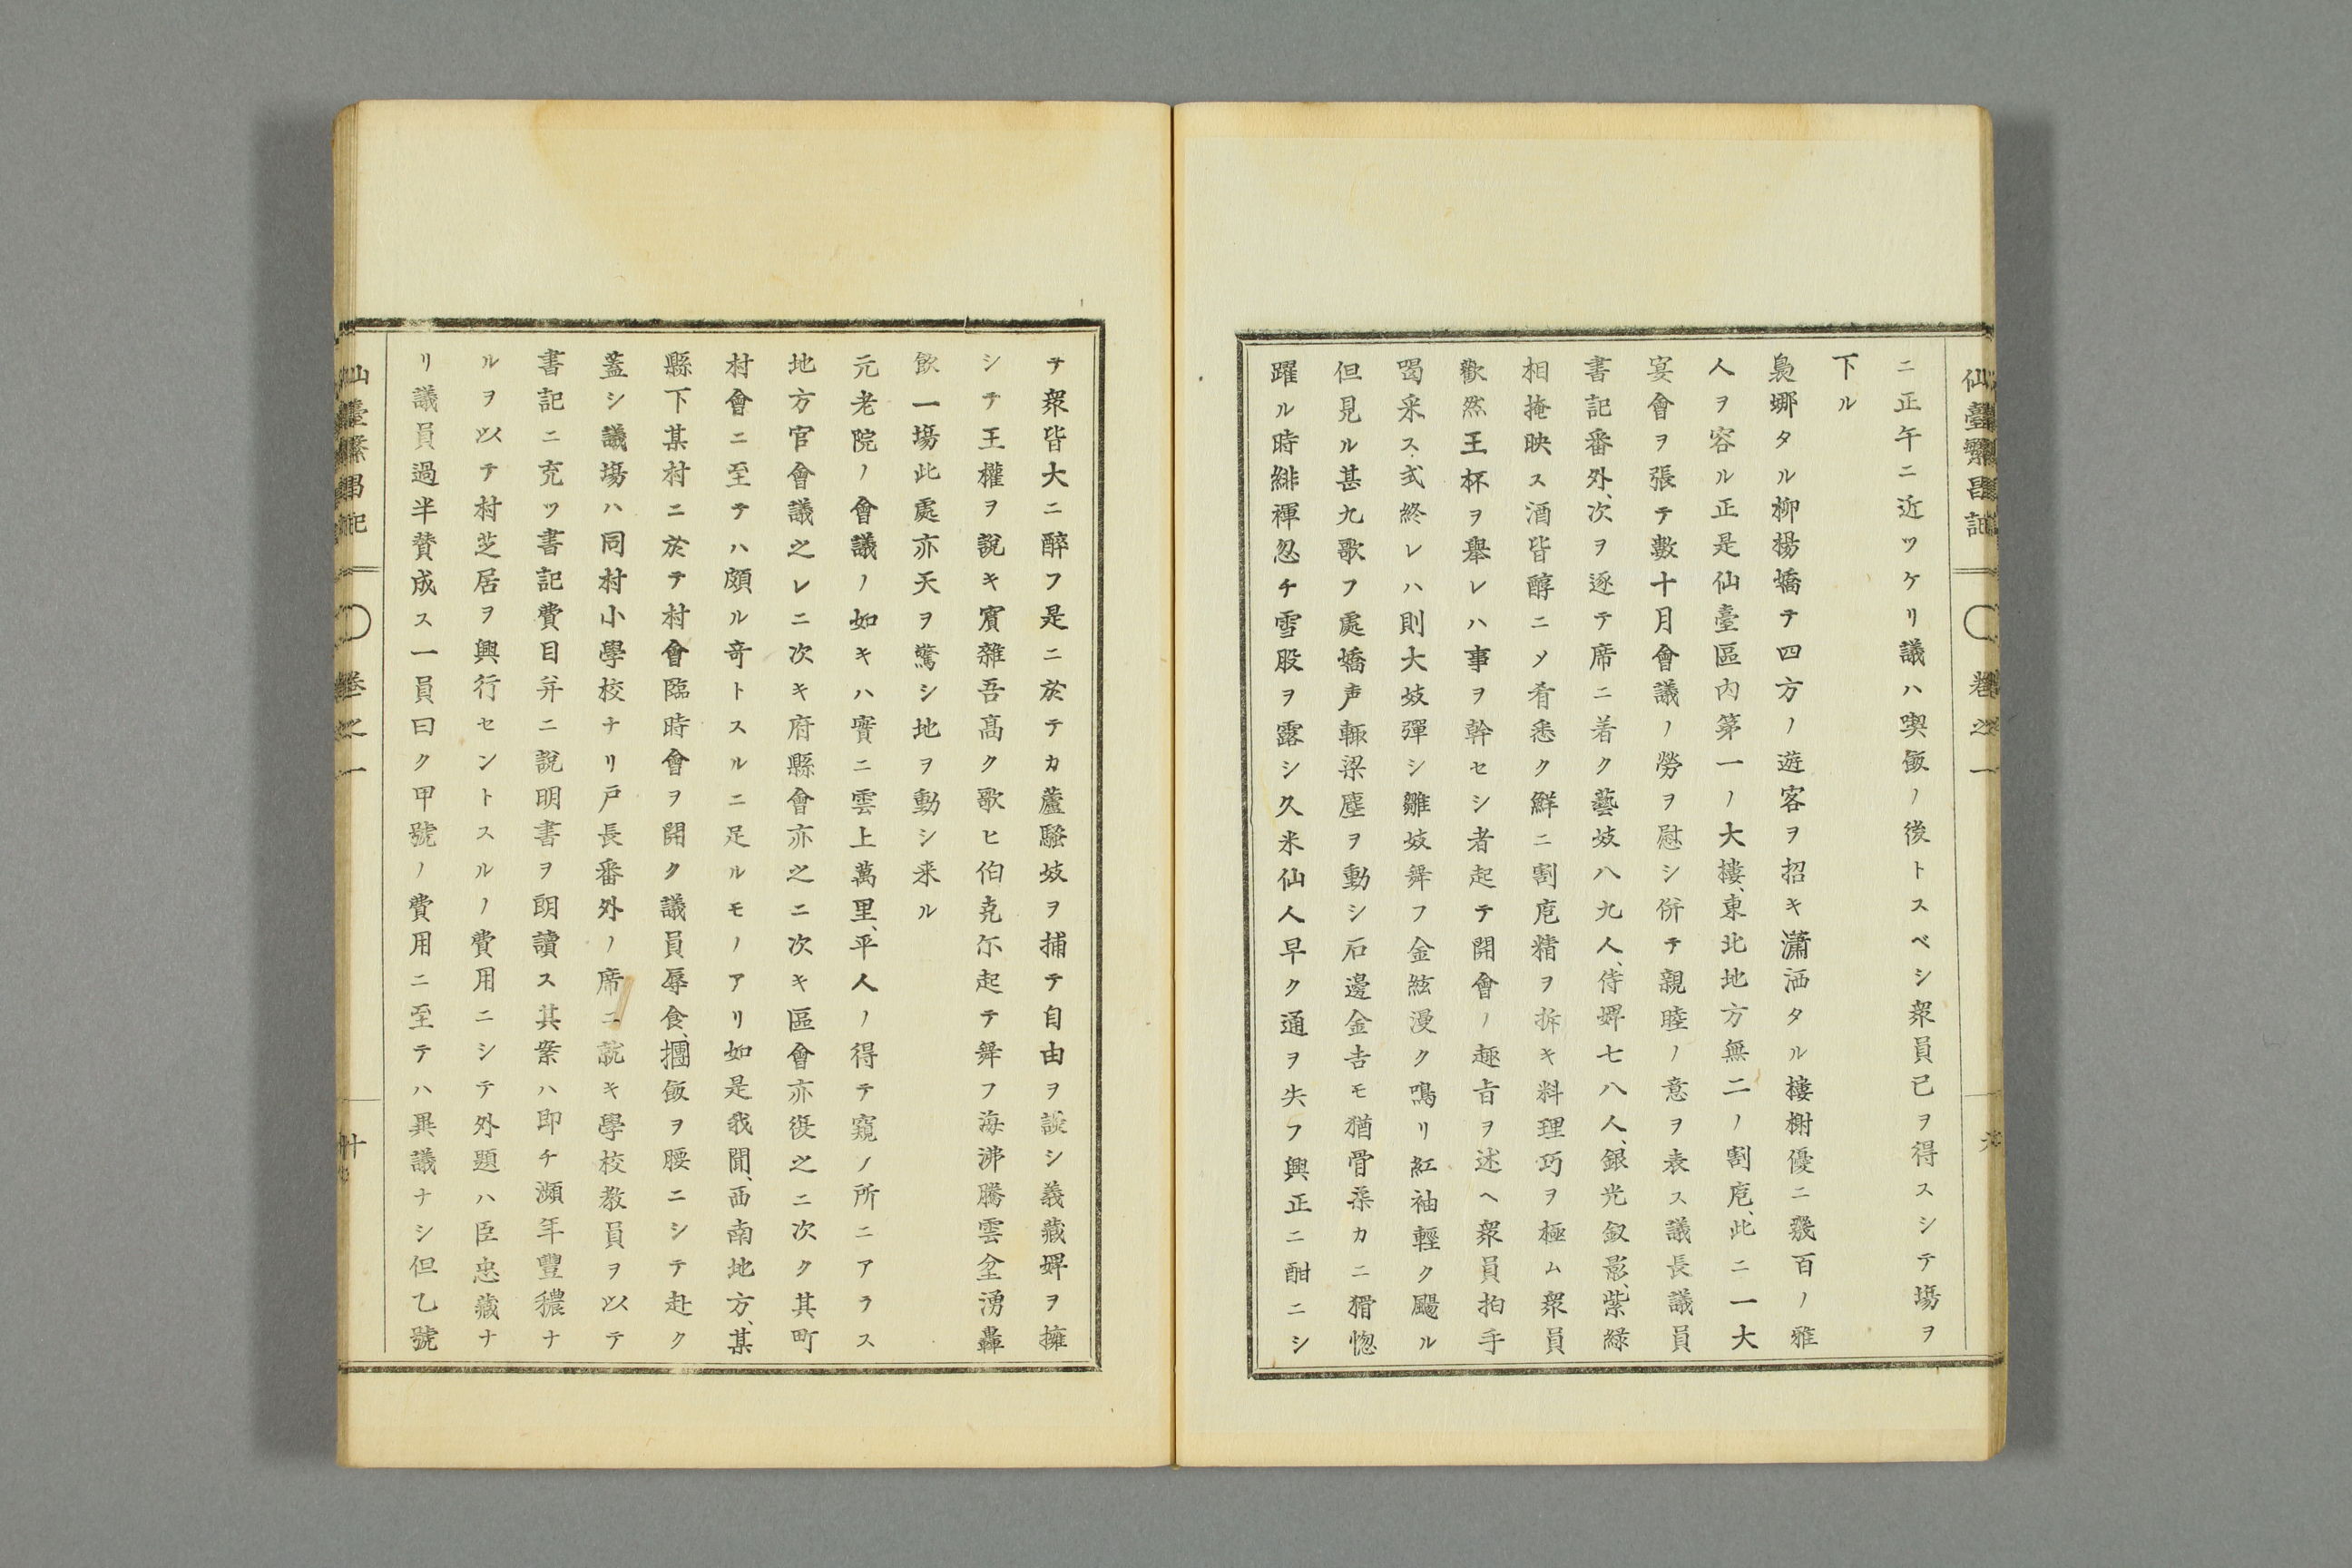 仙臺繁昌記 ○ 卷之一
ニ正午ニ近ツケリ議ハ喫飯ノ後トスベシ衆員已ヲ得スシテ場ヲ
下ル
裊娜タル柳楊嬌テ四方ノ遊客ヲ招キ瀟洒タル樓榭優ニ幾百ノ雅
人ヲ容ル正是仙臺區内第一ノ大樓、東北地方無二ノ割庖、此ニ一大
宴會ヲ張テ數十月會議ノ勞ヲ慰シ併テ親睦ノ意ヲ表ス議長議員
書記番外、次ヲ逐テ席ニ着ク藝妓八九人、侍婢七八人、銀光釵影、紫綠
相掩映ス酒皆醇ニメ肴悉ク鮮ニ割庖精ヲ拆キ料理巧ヲ極ム衆員
歡然王杯ヲ舉レハ事ヲ幹セシ者起テ開會ノ趣旨ヲ述ヘ衆員拍手
喝采ス式終レハ則大妓彈シ雛妓舞フ金絃漫ク鳴リ紅袖輕ク颺ル
但見ル甚九歌フ處嬌声輙梁塵ヲ動シ石邊金吉モ猶骨渠カニ猾惚
躍ル時緋褌忽チ雪股ヲ露シ久米仙人早ク通ヲ失フ興正ニ酣ニシ
テ衆皆大ニ醉フ是ニ於テカ蘆騒妓ヲ捕テ自由ヲ談シ義藏婢ヲ擁
シテ王權ヲ説キ賓雜吾高ク歌ヒ伯克尓起テ舞フ海沸騰雲坌湧轟
飲一場此處亦天ヲ驚シ地ヲ動シ来ル
元老院ノ會議ノ如キハ實ニ雲上萬里、平人ノ得テ窺ノ所ニアラス
地方官會議之レニ次キ府縣會亦之ニ次キ區會亦復之ニ次ク其町
村會ニ至テハ頗ル竒トスルニ足ルモノアリ如是我聞、西南地方、某
縣下某村ニ於テ村會臨時會ヲ開ク議員辱食、摶飯ヲ腰ニシテ赴ク
蓋シ議場ハ同村小學校ナリ戸長番外ノ席ニ就キ學校教員ヲ以テ
書記ニ充ツ書記費目并ニ説明書ヲ朗讀ス其案ハ即チ瀕年豐穰ナ
ルヲ以テ村芝居ヲ興行セントスルノ費用ニシテ外題ハ臣忠藏ナ
リ議員過半賛成ス一員曰ク甲號ノ費用ニ至テハ異議ナシ但乙號
仙臺繁昌記 ○ 卷之一 十